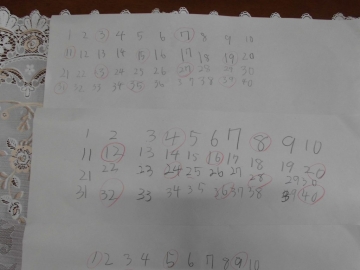 1 2 3 4 5 6 7 8 9 10
11 12 13 14 15 16 17 18 19 20
21 22 23 24 25 26 27 28 29 30
31 32 33 34 35 36 37 38 39 40
1 2 3 4 5 6 7 8 9 10
11 12 13 14 15 16 17 18 19 20
21 22 23 24 25 26 27 28 29 30
31 32 33 34 35 36 37 38 39 40
1 2 3 4 5 6 7 8 9 10